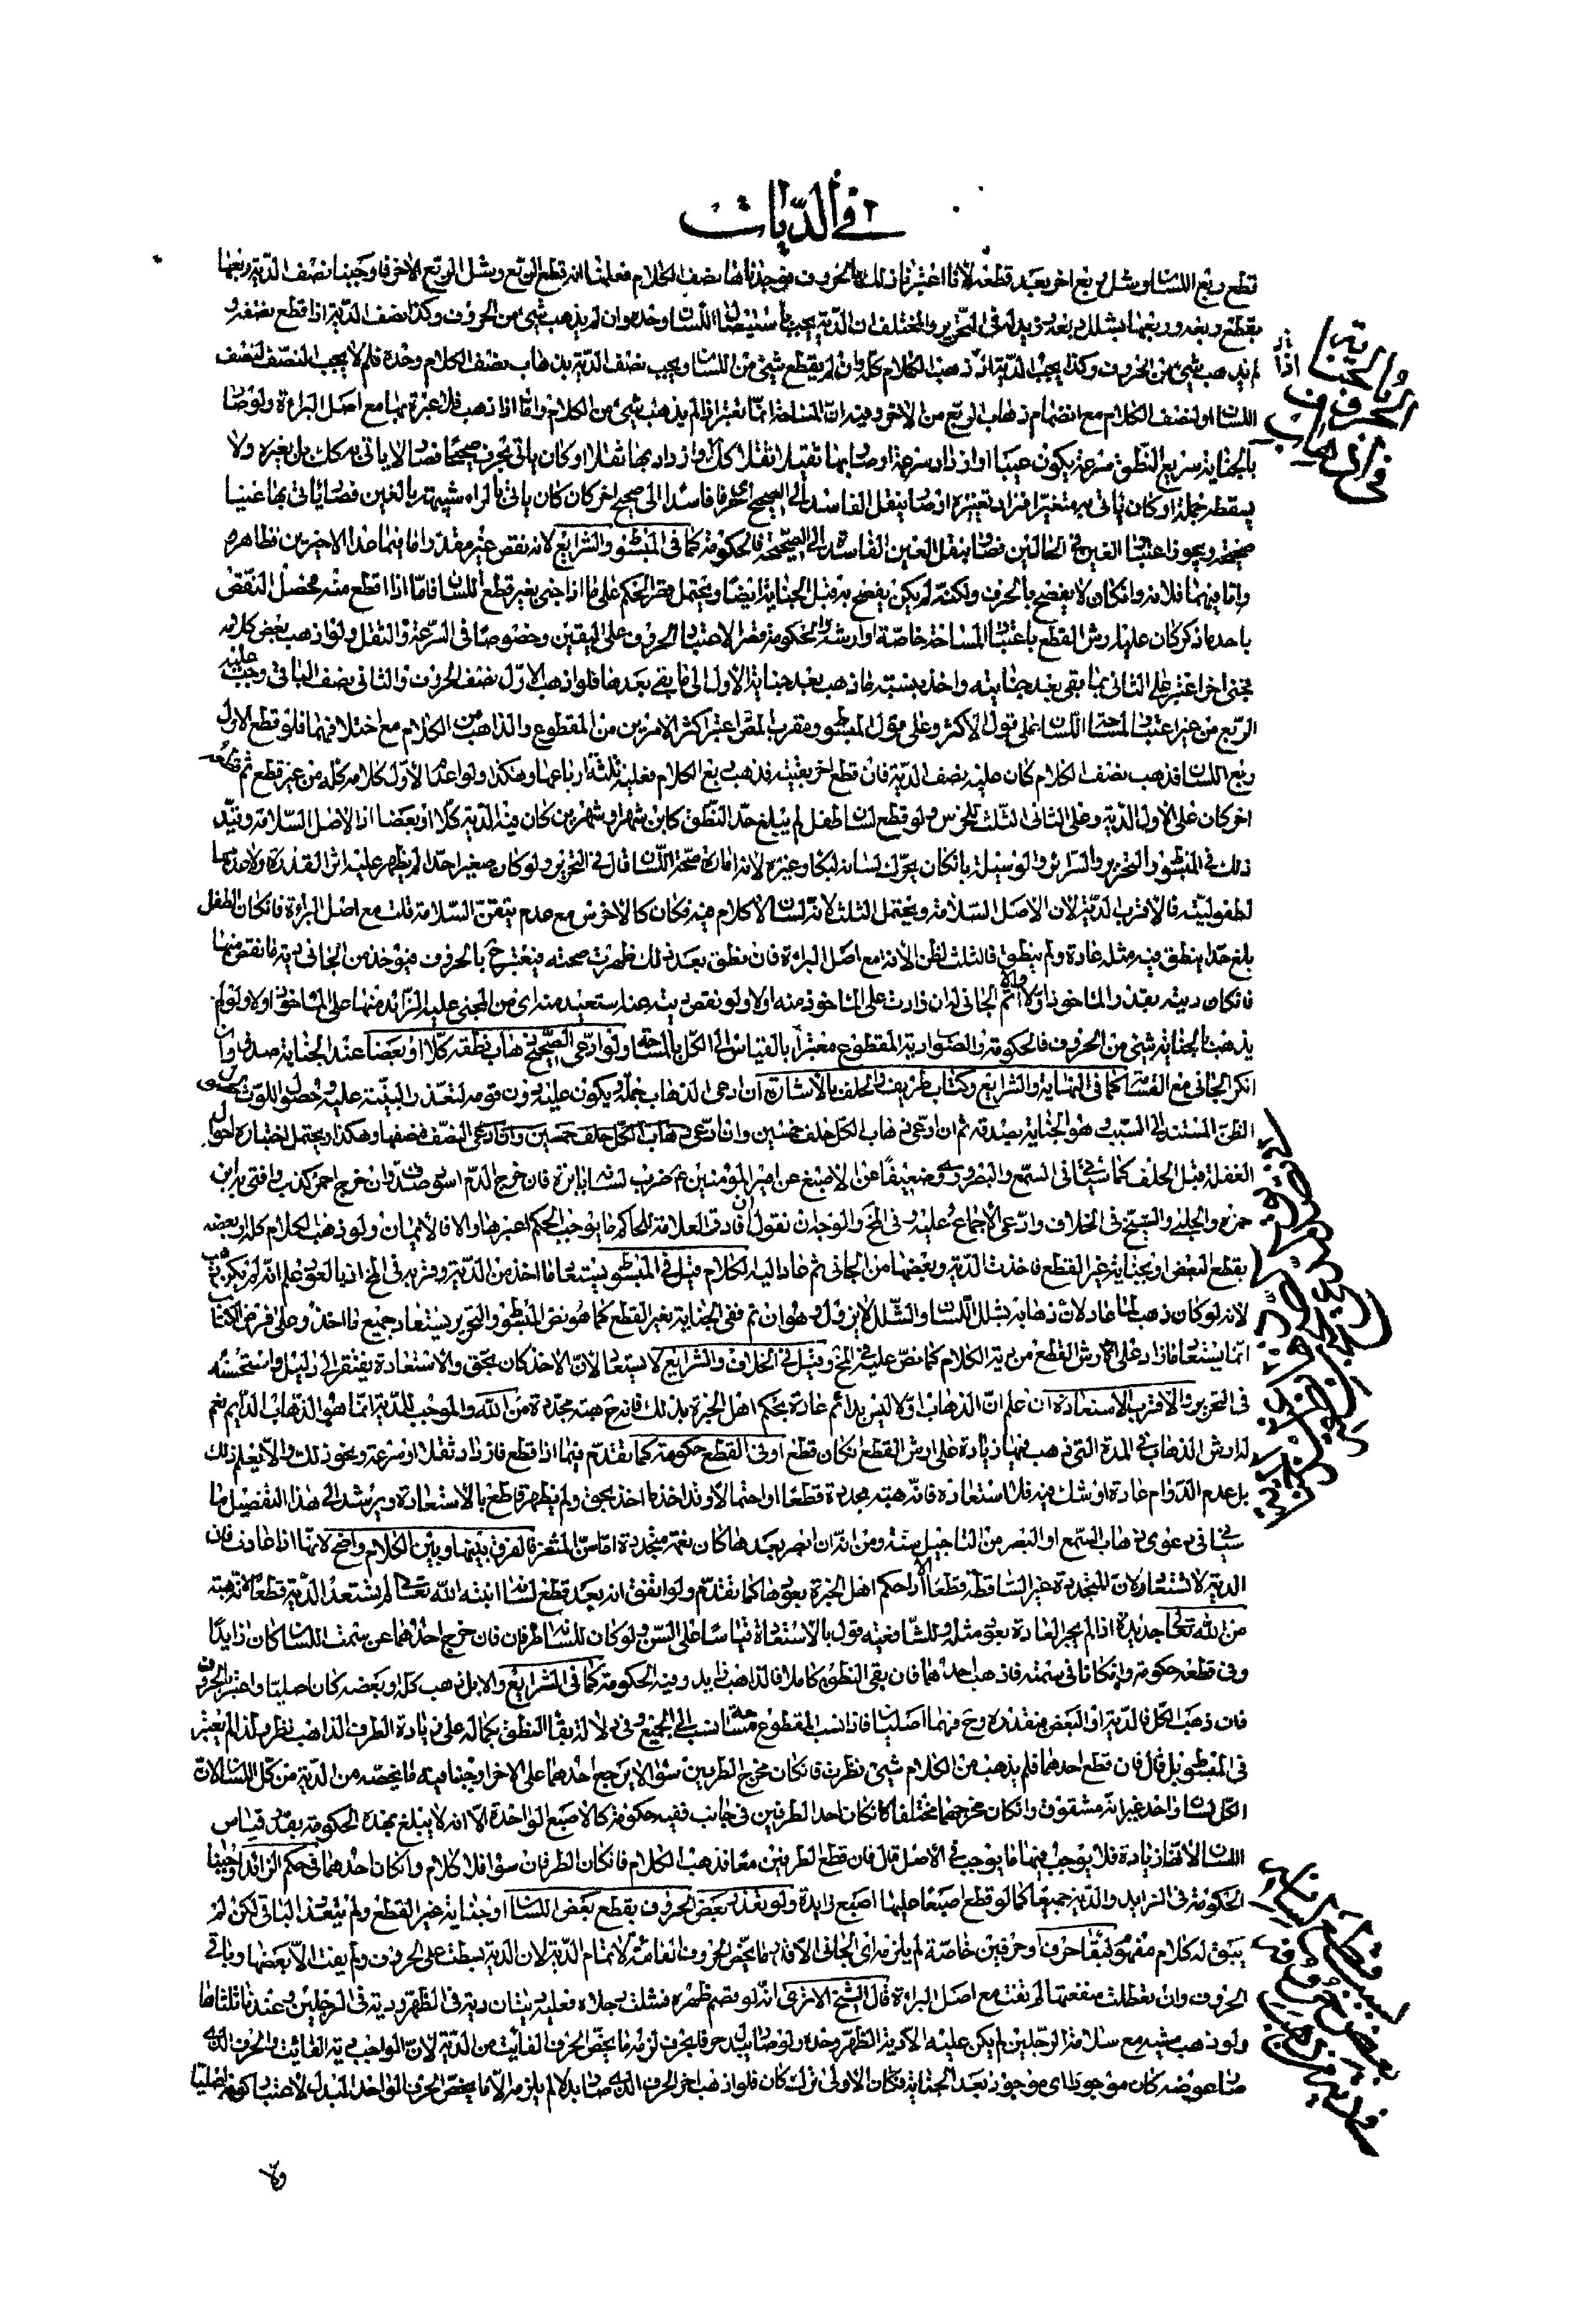 في الديات
قطع ربع اللسان وشل ربع اخر بعد قطعه لانا اعتبرنا ذلك بالحروف فوجدناها نصف الكلام فعلمنا انه قطع الربع وشل الربع الاخر فاوجبنا نصف الدية ربعها
بقطع ربعه وربعها بشلل ربعه ويزيد له في التحرير والمختلف ان الدية يجب باستيصال اللسان وحده وان لم يذهب شيء من الحروف وكذا نصف الدية اذا قطع نصفه و
لم يذهب شيء من الحروف وكذا يجب الدية اذا ذهب الكلام كله وان لم يقطع شيء من اللسان ويجب نصف الدية بذهاب نصف الكلام وحده فلم لا يجب النصف لنصف
اللسان او لنصف الكلام مع انضمام ذهاب الربع من الاخر وفيه ان المساحة انما يعتبر اذا لم يذهب شيء من الكلام واما اذا ذهب فلا عبرة بها مع اصل البراءة ولو صار
بالجناية سريع النطق سرعة يكون عيبا او ازداد سرعة او صار بها ثقيلا نقلا كل وازداد بها ثقلا او كان ياتي بحرف صحيحا فصار لا ياتي به كك بل يغيره ولا
يسقطه جملة او كان ياتي به متغيرا فزاد تغييره او صار ينقل الفاسد الى الصحيح اي حرفا فاسدا الى صحيح اخر كان كان ياتي بالراء شبيهة بالغين فصار ياتي بها غينا
صحيحة ويجوز اعتبار الغين في الحالين فصار ينقل الغين الفاسدة الى الصحيحة فالحكومة كما في المبسوط والشرايع لانه نقص غير مقدر اما فيما عدا الاخيرين فظاهر
واما فيهما فلانه وان كان لا يفصح بالحرف ولكنه لم يكن يفصح به قبل الجناية ايضا ويحتمل قصر الحكم على ما اذا جنى بغير قطع اللسان فاما اذا قطع منه فحصل النقص
باحد ما ذكر كان عليه ارش القطع باعتبار المساحة خاصة او ارشه والحكومة لقصر الاعتبار بالحروف على اليقين وخصوصا في السرعة والثقل ولو اذهب بعض كلامه
فجنى اخر اعتبر على الثاني بما بقي بعد جنايته واخذ بنسبة ما ذهب بعد جناية الاول الى ما بقي بعدها فلو اذهب الاول نصف الحروف والثاني نصف الباقي وجب عليه
الربع من غير اعتبار لمساحة اللسان على قول الاكثر وعلى قول المبسوط ومقرب المص اعتبر اكثر الامرين من المقطوع والذاهب من الكلام مع اختلافهما فلو قطع الاول
ربع اللسان فذهب نصف الكلام كان عليه نصف الدية فان قطع اخر بقيته فذهب ربع الكلام فعليه ثلثة ارباعها وهكذا ولو اعدم الاول كلامه كله من غير قطع ثم قطعه
اخر كان على الاول الدية وعلى الثاني الثلث للخرس ولو قطع لسان طفل لم يبلغ حد النطق كابن شهر او شهرين كان فيه الدية كلا او بعضا اذ الاصل السلامة وقيد
ذلك في المبسوط والتحرير والسرائر والوسيلة بان كان يحرك لسانه لبكاء وغيره لانه امارة صحة اللسان قال في التحرير ولو كان صغيرا جدا لم يظهر عليه اثر القدرة ولا عدمها
لطفوليته فالاقرب الدية لان الاصل السلامة ويحتمل الثلث لانه لسان لا كلام فيه فكان كالاخرس مع عدم تيقن السلامة قلت مع اصل البراءة فان كان الطفل
بلغ حدا ينطق فيه مثله عادة ولم ينطق فالثلث لظن الافة مع اصل البراءة فان نطق بعد ذلك ظهرت صحته فيعتبر ح بالحروف فيؤخذ من الجاني دية ما نقص منها
فان كان ديته بقدر الماخوذ اولا والا اتم الجاني له ان زادت على الماخوذ منه اولا ولو نقص ديته عنه استعيد منه اي من المجني عليه الزائد منها على الماخوذ اولا ولو لم
يذهب بالجناية شيء من الحروف فالحكومة والصواب دية المقطوع معتبرا بالقياس الى الكل بالمساحة ولو ادعى الصحيح ذهاب نطقه كلا او بعضا عند الجناية صدق وان
انكر الجاني مع القسامة كما في النهاية والشرايع وكتاب ظريف والحلف بالاشارة ان ادعى الذهاب جملة ويكون عليه دون قومه لتعذر البينة عليه وحصول اللوث بحصول
الظن المستند الى السبب وهو الجناية بصدقه ثم ان ادعى ذهاب الكل حلف خمسين وان ادعى ذهاب الكل حلف خمسين وان ادعى النصف فنصفها وهكذا ويحتمل اختباره حال
الغفلة قبل الحلف كما سيأتي في السمع والبصر وروي ضعيفا عن الاصبغ عن امير المؤمنين ع يضرب لسانه بابرة فان خرج الدم اسود صدق وان خرج احمر كذب وافتى به ابن
حمزة والحلبي والشيخ في الخلاف وادعى الاجماع عليه وفي المخ والوجه ان نقول ان افادت العلامة للحاكم ما يوجب الحكم اعتبرها والا فالايمان ولو ذهب الكلام كله او بعضه
بقطع البعض او بجناية غير القطع فاخذت الدية او بعضها من الجاني ثم عاد اليه الكلام قيل في المبسوط يستعاد ما اخذ من الدية وقربه في المخ اذ بالعود علم انه لم يكن ذهب
لانه لو كان ذهب لما عاد لان ذهابه بشلل اللسان والشلل لا يزول وهو ان تم ففي الجناية بغير القطع كما هو نص المبسوط والتحرير يستعاد جميع ما اخذ وعلى فرض الكتاب
انما يستعاد ما زاد على ارش القطع من دية الكلام كما نص عليه في المخ وقيل في الخلاف والشرايع لا يستعاد لان الاخذ كان بحق والاستعادة يفتقر الى دليل واستحسنه
في التحرير والاقرب الاستعادة ان علم ان الذهاب اولا ليس بدائم عادة بحكم اهل الخبرة بذلك فانه ح هبة مجددة من الله والموجب للدية انما هو الذهاب الدايم نعم
له ارش الذهاب في المدة التي ذهب فيها زيادة على ارش القطع ان كان قطع او في القطع حكومة كما تقدم فيما اذا قطع فازداد ثقلا او سرعة ونحو ذلك والا يعلم ذلك
بل عدم الدوام عادة او شك فيه فلا استعادة فانه هبة مجددة قطعا او احتمالا وقد اخذ ما اخذ بحق ولم يظهر قاطع بالاستعادة ويرشد الى هذا التفصيل ما
سيأتي في دعوى ذهاب السمع او البصر من التاجيل سنة ومن انه ان ابصر بعدها كان نعمة متجددة اما سن المثغر فالفرق بينها وبين الكلام واضح لانها اذا عادت فان
الدية لا تستعاد لان المتجددة غير الساقطة قطعا الا اذا حكم اهل الخبرة بعودها كما تقدم ولو اتفق انه بعد قطع لسانه انبته الله تعالى لم يستعد الدية قطعا لانه هبة
من الله تعالى جديدة اذ لم يجر العادة بعود مثله وللشافعية قول بالاستعادة قياسا على السن ولو كان للسانه طرفان فان خرج احدهما عن سمت اللسان كان زايدا
وفي قطعه حكومة وان كانا في سمته فاذهب احدهما فان بقي النطق كاملا فالذاهب زايد وفيه الحكومة كما في الشرايع والا بل ذهب كله او بعضه كان اصليا واعتبر بالحروف
فان ذهب الكل فالدية او البعض فبقدره وح فهما اصليان فاذا نسب المقطوع مساحة نسب الى الجميع وفي دلالة بقاء النطق بكماله على زيادة الطرف الذاهب نظر ولذا لم يعتبر
في المبسوط بل قال فان قطع احدهما فلم يذهب من الكلام شيء نظرت فان كان مخرج الطرفين سواء لا يرجح احدهما على الاخر اوجبنا فيه ما يخصه من الدية من كل اللسان لان
الكل لسان واحد غير انه مشقوق وان كان مخرجهما مختلفا كان كان احد الطرفين في جانب ففيه حكومة كالاصبع الواحدة الا انه لا يبلغ بهذه الحكومة بقدر قياس
اللسان لانها زيادة فلا يوجب فيها ما يوجب في الاصل قال فان قطع الطرفين معا فذهب الكلام فان كان الطرفان سواء فلا كلام وان كان احدهما في حكم الزائد اوجبنا
الحكومة في الزايد والدية جميعا كما لو قطع اصبعا عليها اصبع زايدة ولو تعذر بعض الحروف بقطع بعض اللسان او جناية غير القطع ولم يتعذر الباقي لكن لم
يبق له كلام مفهوم لبقاء حرف او حرفين خاصة لم يلزمه اي الجاني الا قدر ما يخص الحروف الفائتة لا تمام الدية لان الدية بسطت على الحروف ولم يفت الا بعضها وباقي
الحروف وان تعطلت منفعتها لم تفت مع اصل البراءة قال الشيخ الا ترى انه لو قصم ظهره فشلت رجلاه فعليه ديتان دية في الظهر ودية في الرجلين وعندنا ثلثاها
ولو ذهب مشيه مع سلامة الرجلين لم يكن عليه الا دية الظهر وحده ولو صار يبدل حرفا بحرف لزمه ما يخص الحرف الفايت من الدية لان الواجب دية الفائت والحرف الذي
صار عوضه كان موجودا اي موجود بعد الجناية فكان الاولى ترك كان فلو اذهب اخر الحرف الذي صار بدلا لم يلزمه الا ما يخص الحرف الواحد المبدل لا اعتبار كونه اصليا
ولا